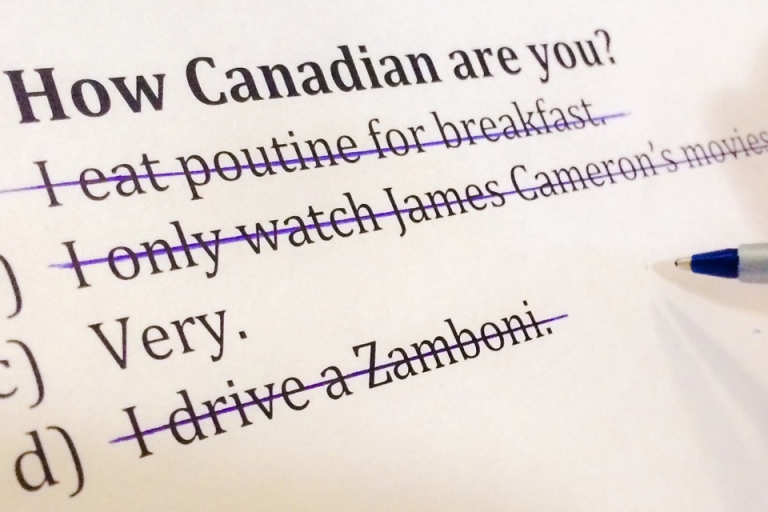 How Canadian are you?
I eat poutine for breakfast.
) I only watch James Cameron's movies
c) Very.
d) I drive a Zamboni.